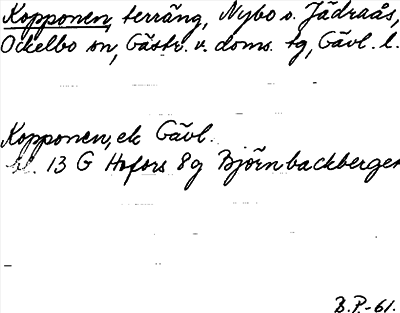 Kopponen, terräng, Nybo o. Jädraås,
Ockelbo sn, Gästr. v. doms. tg, Gävl. l.
Kopponen, ek Gävl.
bl. 13 G Hofors 8g Björnbackberget
B.P.-61.